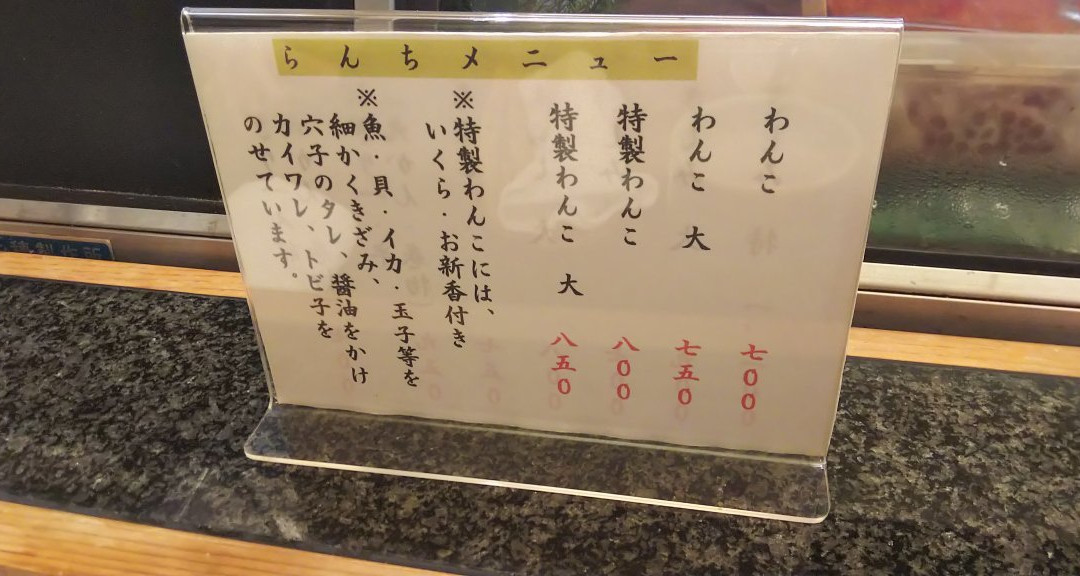 らんちメニュー
わんこ 七〇〇
わんこ 大 七五〇
特製わんこ 八〇〇
特製わんこ 大 八五〇
※特製わんこには、
いくら・お新香付き
※魚・貝・イカ・玉子等を
細かくきざみ、
穴子のタレ、醤油をかけ
カイワレ、トビ子を
のせています。